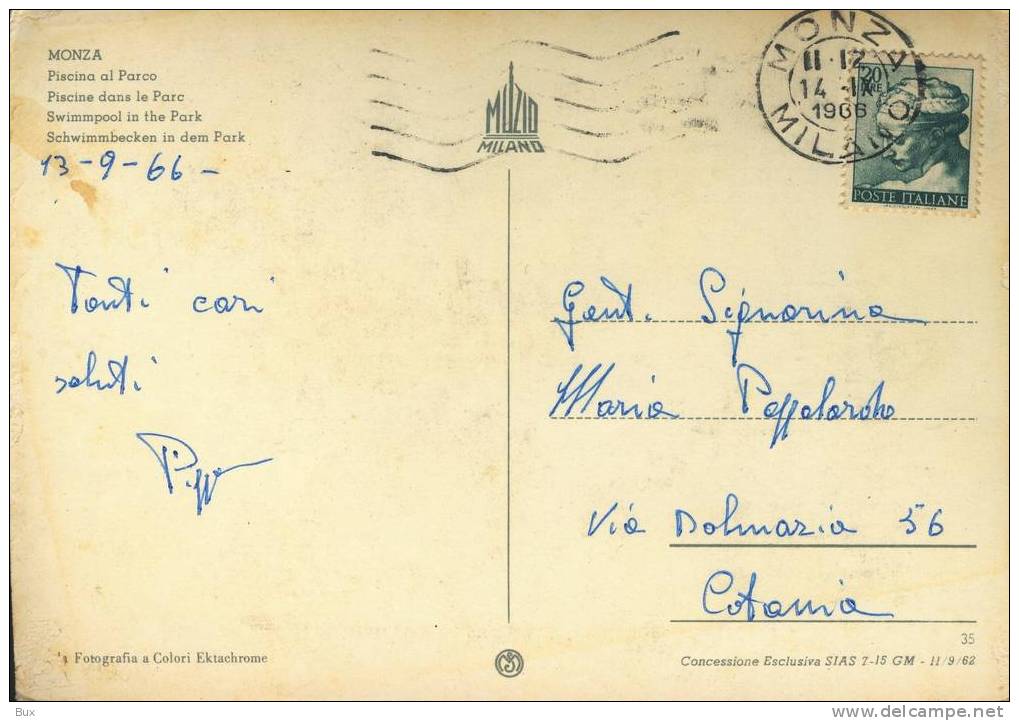 MONZA
Piscina al Parco
Piscine dans le Parc
Swimmpool in the Park
Schwimmbecken in dem Park
13-9-66-
MUZIO
MILANO
MONZA
11-12
14
1966
MILANO
20
LIRE
POSTE ITALIANE
Tanti cari
saluti
Pippo
Gent. Signorina
Maria Pappalardo
Via Dolmazia 56
Catania
35
Fotografia a Colori Ektachrome
Concessione Esclusiva SIAS 7-15 GM - 11/9/62
Bux
www.delcampe.net